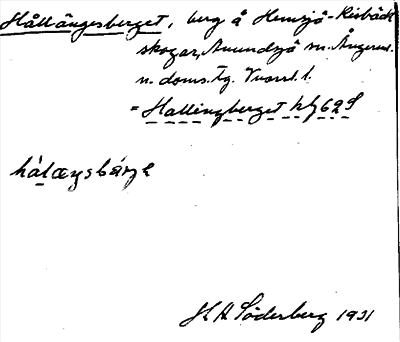 Hållängesberget, berg å Hemsjö-Risbäck
skogar, Anundsjö sn. Ångerml.
n. doms. tg. Vnorrl. l.
= Hallingberget hfg 62 S
hålæŋsbärjə
H A Söderberg 1931